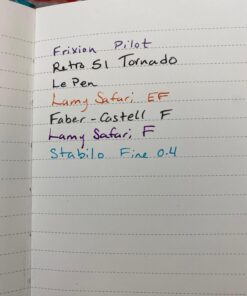 Frixion Pilot
Retro 51 Tornado
Le Pen
Lamy Safari EF
Faber-Castell F
Lamy Safari F
Stabilo Fine 0.4